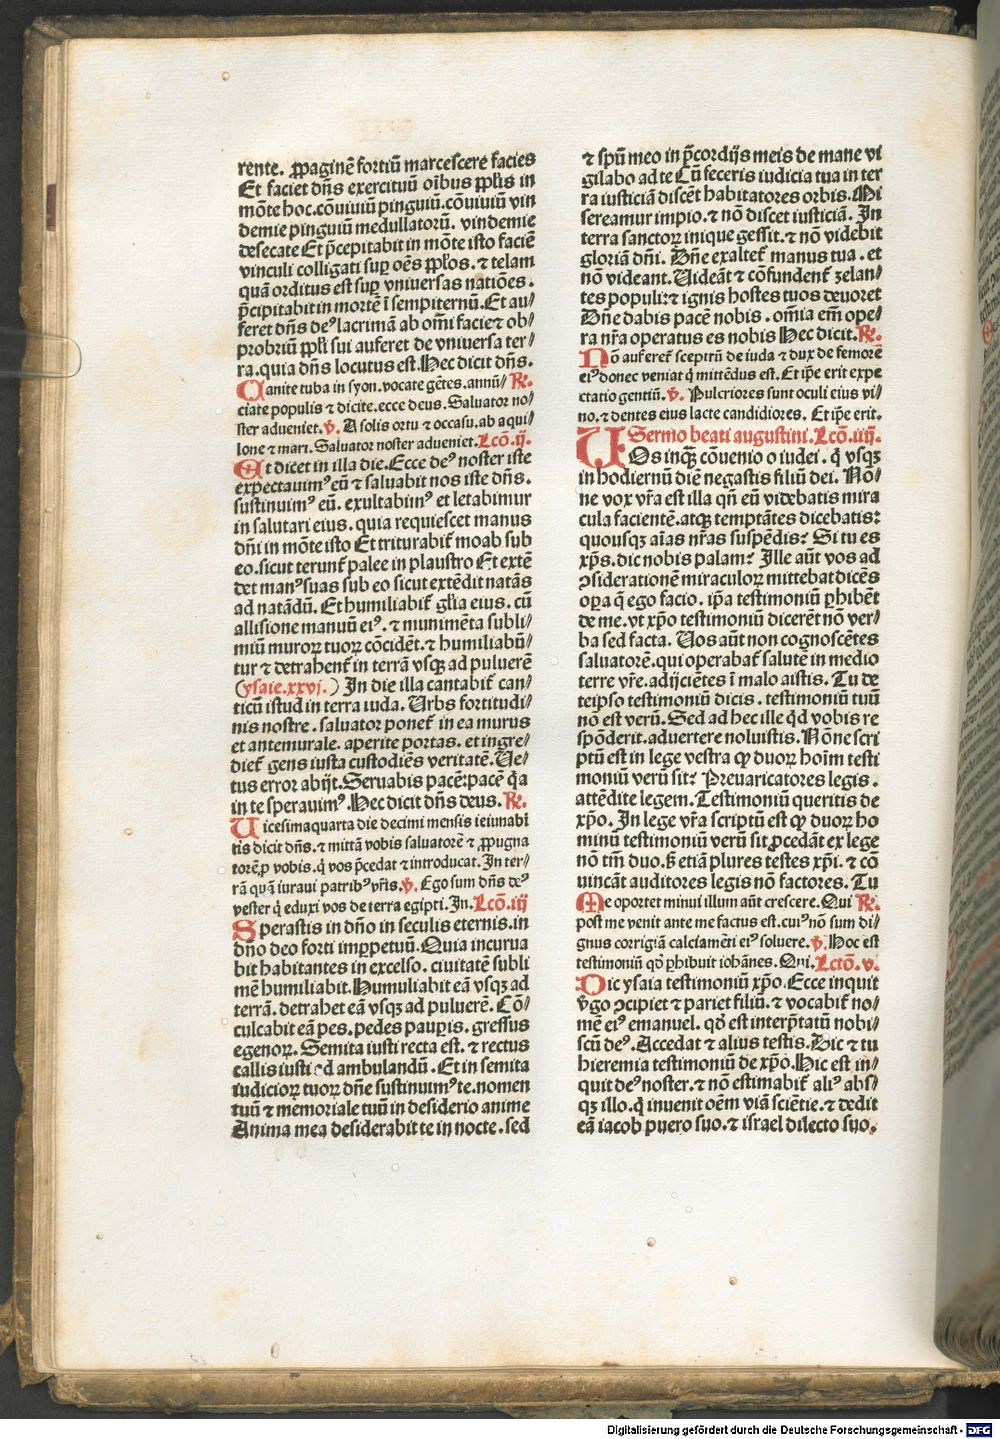 rente. ꝓpaginē fortiū marcescere facies
Et faciet dn̄s exercituū oībus ppl̓is in
mōte hoc.cōuiuiū pinguiū.cōuiuiū vin
demie pinguiū medullatorū. vindemie
desecate Et p̄cepitabit in mōte isto faciē
vinculi colligati suꝑ oēs ppl̓os. ⁊ telam
quā orditus est suꝑ vniuersas natiōes.
p̄cipitabit in mortē ī sempiternū. Et au⸗
feret dn̄s deꝰ lacrimā ab om̄i facie ⁊ ob⸗
probriū ppl̓i sui auferet de vniuersa ter⸗
ra. quia dn̄s locutus est. Hec dicit dn̄s.
Canite tuba in syon. vocate gētes. annū⸗ ℟.
ciate populis ⁊ dicite. ecce deus. Saluator no⸗
ster adueniet. ℣. A solis ortu ⁊ occasu. ab aqui⸗
lone ⁊ mari. Saluator noster adueniet. Lcō. ij.
Et dicet in illa die. Ecce deꝰ noster iste
expectauimꝰ eū ⁊ saluabit nos iste dn̄s.
sustinuimꝰ eū. exultabimꝰ et letabimur
in salutari eius. quia requiescet manus
dn̄i in mōte isto Et triturabit᷑ moab sub
eo. sicut terunt᷑ palee in plaustro Et extē
det manꝰ suas sub eo sicut extēdit natās
ad natādū. Et humiliabit᷑ gl̓ia eius. cū
allisione manuū eiꝰ. ⁊ munimēta subli⸗
miū muroꝝ tuoꝝ cōcidēt. ⁊ humiliabū⸗
tur ⁊ detrahent᷑ in terrā vsqꝫ ad puluerē
(ysaie. xxvj.) In die illa cantabit᷑ can⸗
ticū istud in terra iuda. Urbs fortitudi⸗
nis nostre. saluator ponet᷑ in ea murus
et antemurale. aperite portas. et ingre⸗
diet᷑ gens iusta custodiēs veritatē. Ve⸗
tus error abijt. Seruabis pacē: pacē q̄a
in te sperauimꝰ. Hec dicit dn̄s deus. ℟.
Vicesimaquarta die decimi mensis ieiunabi
tis dicit dn̄s. ⁊ mittā vobis saluatorē ⁊ ꝓpugna
torē ꝓ vobis. q̇ vos p̄cedat ⁊ introducat. In ter⸗
rā quā iuraui patribꝰ vr̄is. ℣. Ego sum dn̄s deꝰ
vester q̇ eduxi vos de terra egipti. In. Lcō. iij
Sperastis in dn̄o in seculis eternis. in
dn̄o deo forti imꝑpetuū. Quia incurua
bit habitantes in excelso. ciuitatē subli
mē humiliabit. Humiliabit eā vsqꝫ ad
terrā. detrahet eā vsqꝫ ad puluerē. Cō⸗
culcabit eā pes. pedes pauꝑis. gressus
egenoꝝ. Semita iusti recta est. ⁊ rectus
callis iusti ad ambulandū. Et in semita
iudicioꝝ tuoꝝ dn̄e sustinuimꝰ te. nomen
tuū ⁊ memoriale tuū in desiderio anime
Anima mea desiderabit te in nocte. sed
⁊ spū meo in p̄cordijs meis de mane vi
gilabo ad te Cū feceris iudicia tua in ter
ra iusticiā discēt habitatores orbis. Mi
sereamur impio. ⁊ nō discet iusticiā. In
terra sanctoꝝ inique gessit. ⁊ nō videbit
gloriā dn̄i. Dn̄e exaltet᷑ manus tua. et
nō videant. Uideāt ⁊ cōfundent᷑ zelan⸗
tes populi: ⁊ ignis hostes tuos deuoret
Dn̄e dabis pacē nobis. om̄ia em̄ ope⸗
ra nr̄a operatus es nobis Hec dicit. ℟.
Nō auferet᷑ sceptrū de iuda ⁊ dux de femore
eiꝰ donec veniat q̇ mittēdus est. Et ip̄e erit expe
ctatio gentiū. ℣. Pulcriores sunt oculi eius vi⸗
no. ⁊ dentes eius lacte candidiores. Et ip̄e erit.
Sermo beati augustini. Lcō. iiij.
VOs inqꝫ cōuenio o iudei. q̇ vsqꝫ
in hodiernū diē negastis filiū dei. Nō⸗
ne vox vr̄a est illa qn̄ eū videbatis mira
cula facientē. atqꝫ temptātes dicebatis:
quousqꝫ aīas nr̄as suspēdis? Si tu es
xp̄s. dic nobis palam? Ille aūt vos ad
ↄsiderationē miraculoꝝ mittebat dicēs
oꝑa q̄ ego facio. ip̄a testimoniū ꝑhibēt
de me. vt xp̄o testimoniū dicerēt nō ver⸗
ba sed facta. Uos aūt non cognoscētes
saluatorē. qui operabat᷑ salutē in medio
terre vr̄e. adijciētes ī malo aistis. Tu de
teipso testimoniū dicis. testimoniū tuū
nō est verū. Sed ad hec ille qͥd vobis re
spōderit. aduertere noluistis. Nōne scri
ptū est in lege vestra ꝙ duoꝝ hoīm testi
moniū verū sit? Preuaricatores legis.
attēdite legem. Testimoniū queritis de
xp̄o. In lege vr̄a scriptū est ꝙ duoꝝ ho
minū testimoniū verū sit ꝓcedāt ex lege
nō tm̄ duo. s̄ etiā plures testes xp̄i. ⁊ cō
uincāt auditores legis nō factores. Tu
Me oportet minui illum aūt crescere. Qui ℟.
post me venit ante me factus est. cuiꝰ nō sum di⸗
gnus corrigiā calciamēti eiꝰ soluere. ℣. Hoc est
testimoniū qḋ ꝑhibuit iohānes. Qui. Lctō. v.
Dic ysaia testimoniū xp̄o. Ecce inquit
v̇go ↄcipiet ⁊ pariet filiū. ⁊ vocabit᷑ no⸗
mē eiꝰ emanuel. qḋ est interp̄tatū nobi⸗
scū deꝰ. Accedat ⁊ alius testis. Dic ⁊ tu
hieremia testimoniū de xp̄o. Hic est in⸗
quit deꝰ noster. ⁊ nō estimabit᷑ aliꝰ abs⸗
qꝫ illo. q̇ inuenit oēm viā sciētie. ⁊ dedit
eā iacob puero suo. ⁊ israel dilecto suo.
Digitalisierung gefördert durch die Deutsche Forschungsgemeinschaft - DFG